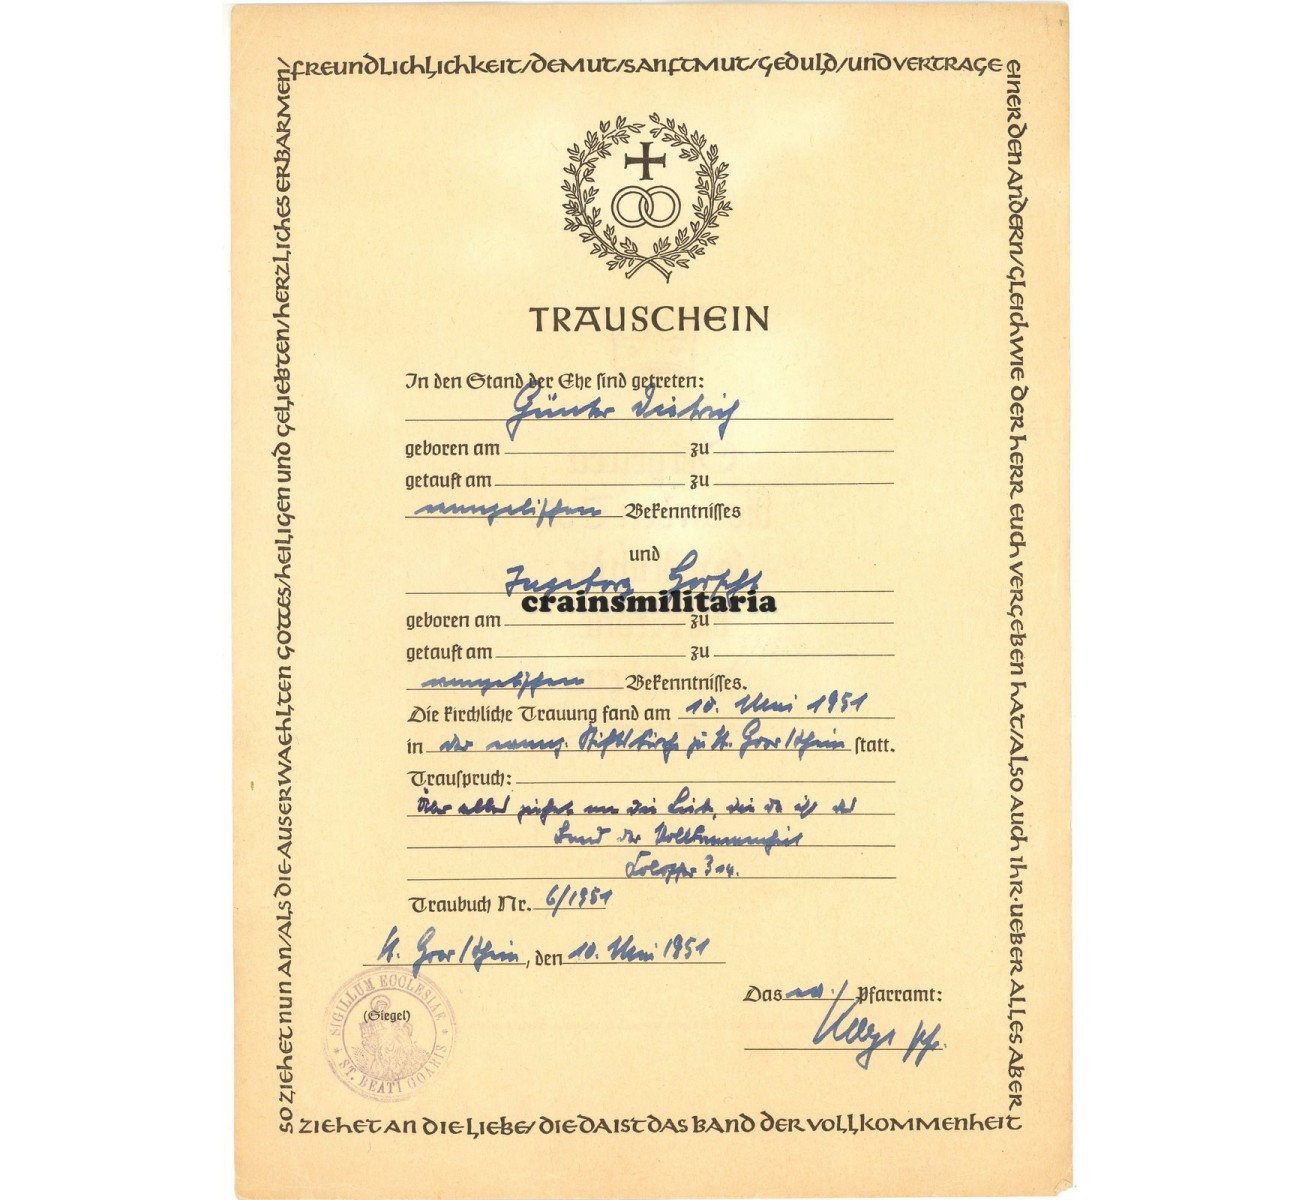 so ziehet nun an/als die auserwaehlten gottes/heiligen und geliebten/herzliches erbarmen/
freundlichlichkeit/demut/sanftmut/geduld/und vertrage
einer den andern/gleichwie der herr euch vergeben hat/also auch ihr·ueber alles aber
ziehet an die liebe/die da ist das band der vollkommenheit
TRAUSCHEIN
In den Stand der Ehe sind getreten:
Günter Dietrich
geboren am zu
getauft am zu
evangelischen Bekenntnisses
und
Ingeborg
crainsmilitaria
geboren am zu
getauft am zu
evangelischen Bekenntnisses.
Die kirchliche Trauung fand am 10. Mai 1951
in der evang. Stiftskirche zu St. Goar/Rhein statt.
Trauspruch:
Über alles ziehet an die Liebe, die da ist das
Band der Vollkommenheit
Kolosser 3 14.
Traubuch Nr. 6/1951
St. Goar/Rhein, den 10. Mai 1951
Das ev. Pfarramt:
(Siegel)
SIGILLUM ECCLESIAE
ST. BEATI GOARIS